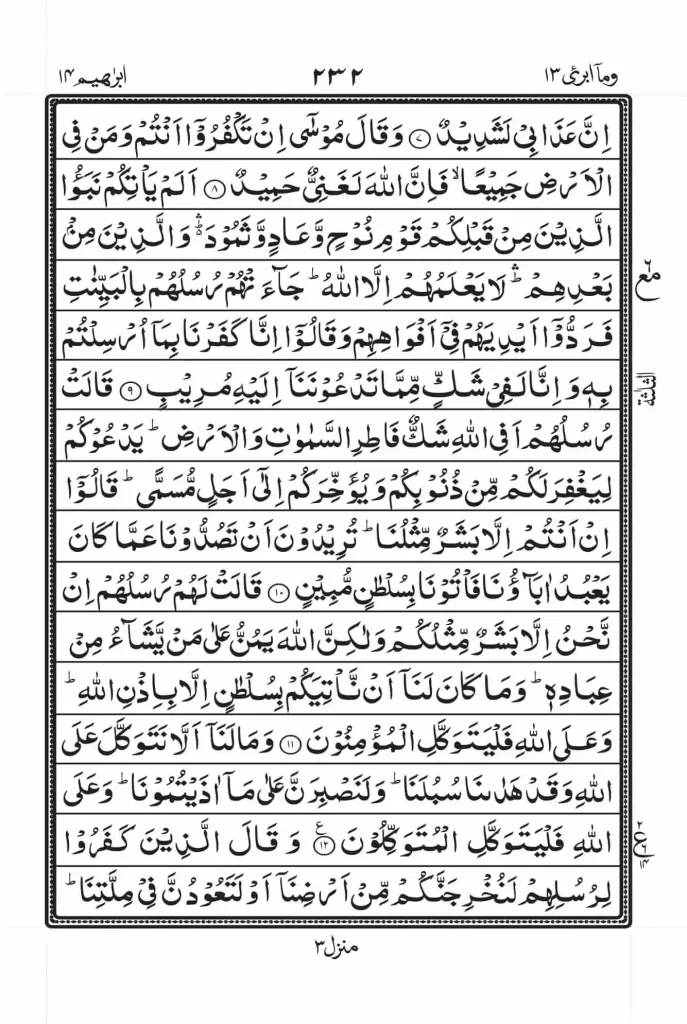 وماۤ ابرئ ١٣
٢٣٢
ابرٰھیم ١٤
اِنَّ عَذَابِیْ لَشَدِیْدٌ ۝٧ وَقَالَ مُوْسٰۤی اِنْ تَكْفُرُوْۤا اَنْتُمْ وَمَنْ فِی
الْاَرْضِ جَمِیْعًا ۙ فَاِنَّ اللّٰهَ لَغَنِیٌّ حَمِیْدٌ ۝٨ اَلَمْ یَاْتِكُمْ نَبَؤُا
الَّذِیْنَ مِنْ قَبْلِكُمْ قَوْمِ نُوْحٍ وَّعَادٍ وَّثَمُوْدَ ۛؕ وَالَّذِیْنَ مِنْۢ
بَعْدِهِمْ ۛؕ لَا یَعْلَمُهُمْ اِلَّا اللّٰهُ ؕ جَآءَتْهُمْ رُسُلُهُمْ بِالْبَیِّنٰتِ
فَرَدُّوْۤا اَیْدِیَهُمْ فِیْۤ اَفْوَاهِهِمْ وَقَالُوْۤا اِنَّا كَفَرْنَا بِمَاۤ اُرْسِلْتُمْ
بِهٖ وَاِنَّا لَفِیْ شَكٍّ مِّمَّا تَدْعُوْنَنَاۤ اِلَیْهِ مُرِیْبٍ ۝٩ قَالَتْ
رُسُلُهُمْ اَفِی اللّٰهِ شَكٌّ فَاطِرِ السَّمٰوٰتِ وَالْاَرْضِ ؕ یَدْعُوْكُمْ
لِیَغْفِرَ لَكُمْ مِّنْ ذُنُوْبِكُمْ وَیُؤَخِّرَكُمْ اِلٰۤی اَجَلٍ مُّسَمًّی ؕ قَالُوْۤا
اِنْ اَنْتُمْ اِلَّا بَشَرٌ مِّثْلُنَا ؕ تُرِیْدُوْنَ اَنْ تَصُدُّوْنَا عَمَّا كَانَ
یَعْبُدُ اٰبَآؤُنَا فَاْتُوْنَا بِسُلْطٰنٍ مُّبِیْنٍ ۝١٠ قَالَتْ لَهُمْ رُسُلُهُمْ اِنْ
نَّحْنُ اِلَّا بَشَرٌ مِّثْلُكُمْ وَلٰكِنَّ اللّٰهَ یَمُنُّ عَلٰی مَنْ یَّشَآءُ مِنْ
عِبَادِهٖ ؕ وَمَا كَانَ لَنَاۤ اَنْ نَّاْتِیَكُمْ بِسُلْطٰنٍ اِلَّا بِاِذْنِ اللّٰهِ ؕ
وَعَلَی اللّٰهِ فَلْیَتَوَكَّلِ الْمُؤْمِنُوْنَ ۝١١ وَمَا لَنَاۤ اَلَّا نَتَوَكَّلَ عَلَی
اللّٰهِ وَقَدْ هَدٰىنَا سُبُلَنَا ؕ وَلَنَصْبِرَنَّ عَلٰی مَاۤ اٰذَیْتُمُوْنَا ؕ وَعَلَی
اللّٰهِ فَلْیَتَوَكَّلِ الْمُتَوَكِّلُوْنَ ۝١٢ۧ وَقَالَ الَّذِیْنَ كَفَرُوْا
لِرُسُلِهِمْ لَنُخْرِجَنَّكُمْ مِّنْ اَرْضِنَاۤ اَوْ لَتَعُوْدُنَّ فِیْ مِلَّتِنَا ؕ
٦ مع
الثلثة
٢ ع ٦ ١٤
منزل ٣